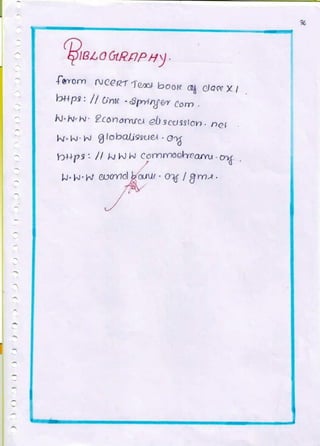 36
BIBLOGRAPHY.
from NCERT Text book of class XI.
https: // link - springer com.
W.W.W. Economics discussion. net
W.W.W globalissues. org
https: // WWW org.
W.W.W bank. org / gms.